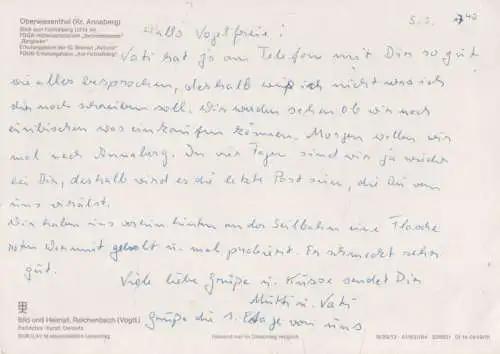 Oberwiesenthal (Kr. Annaberg)
Blick zum Fichtelberg (1214 m)
FDGB-Erholungsheim
"Bergheim"
FDGB-Erholungsheim "Am Fichtelberg"
Hallo Vogelfreie!
Vati hat ja am Telefon mit Dir so gut
wie alles besprochen, deshalb weiß ich nicht was ich
dir noch schreiben soll. Wir werden sehen ob wir noch
einbischen was einkaufen können. Morgen wollen wir
mal nach Annaberg. In vier Tagen sind wir ja wieder
bei Dir, deshalb wird es die letzte Post sein, die Du von
uns erhälst.
Wir haben uns von hinten an der Seilbahn eine Flasche
roten Wermut geholt u. mal probiert. Er schmeckt sehr
gut.
Viele liebe Grüße u. Küsse sendet Dir
Mutti u. Vati
Grüße die 1. Etage von uns
Bild und Heimat, Reichenbach (Vogtl.)